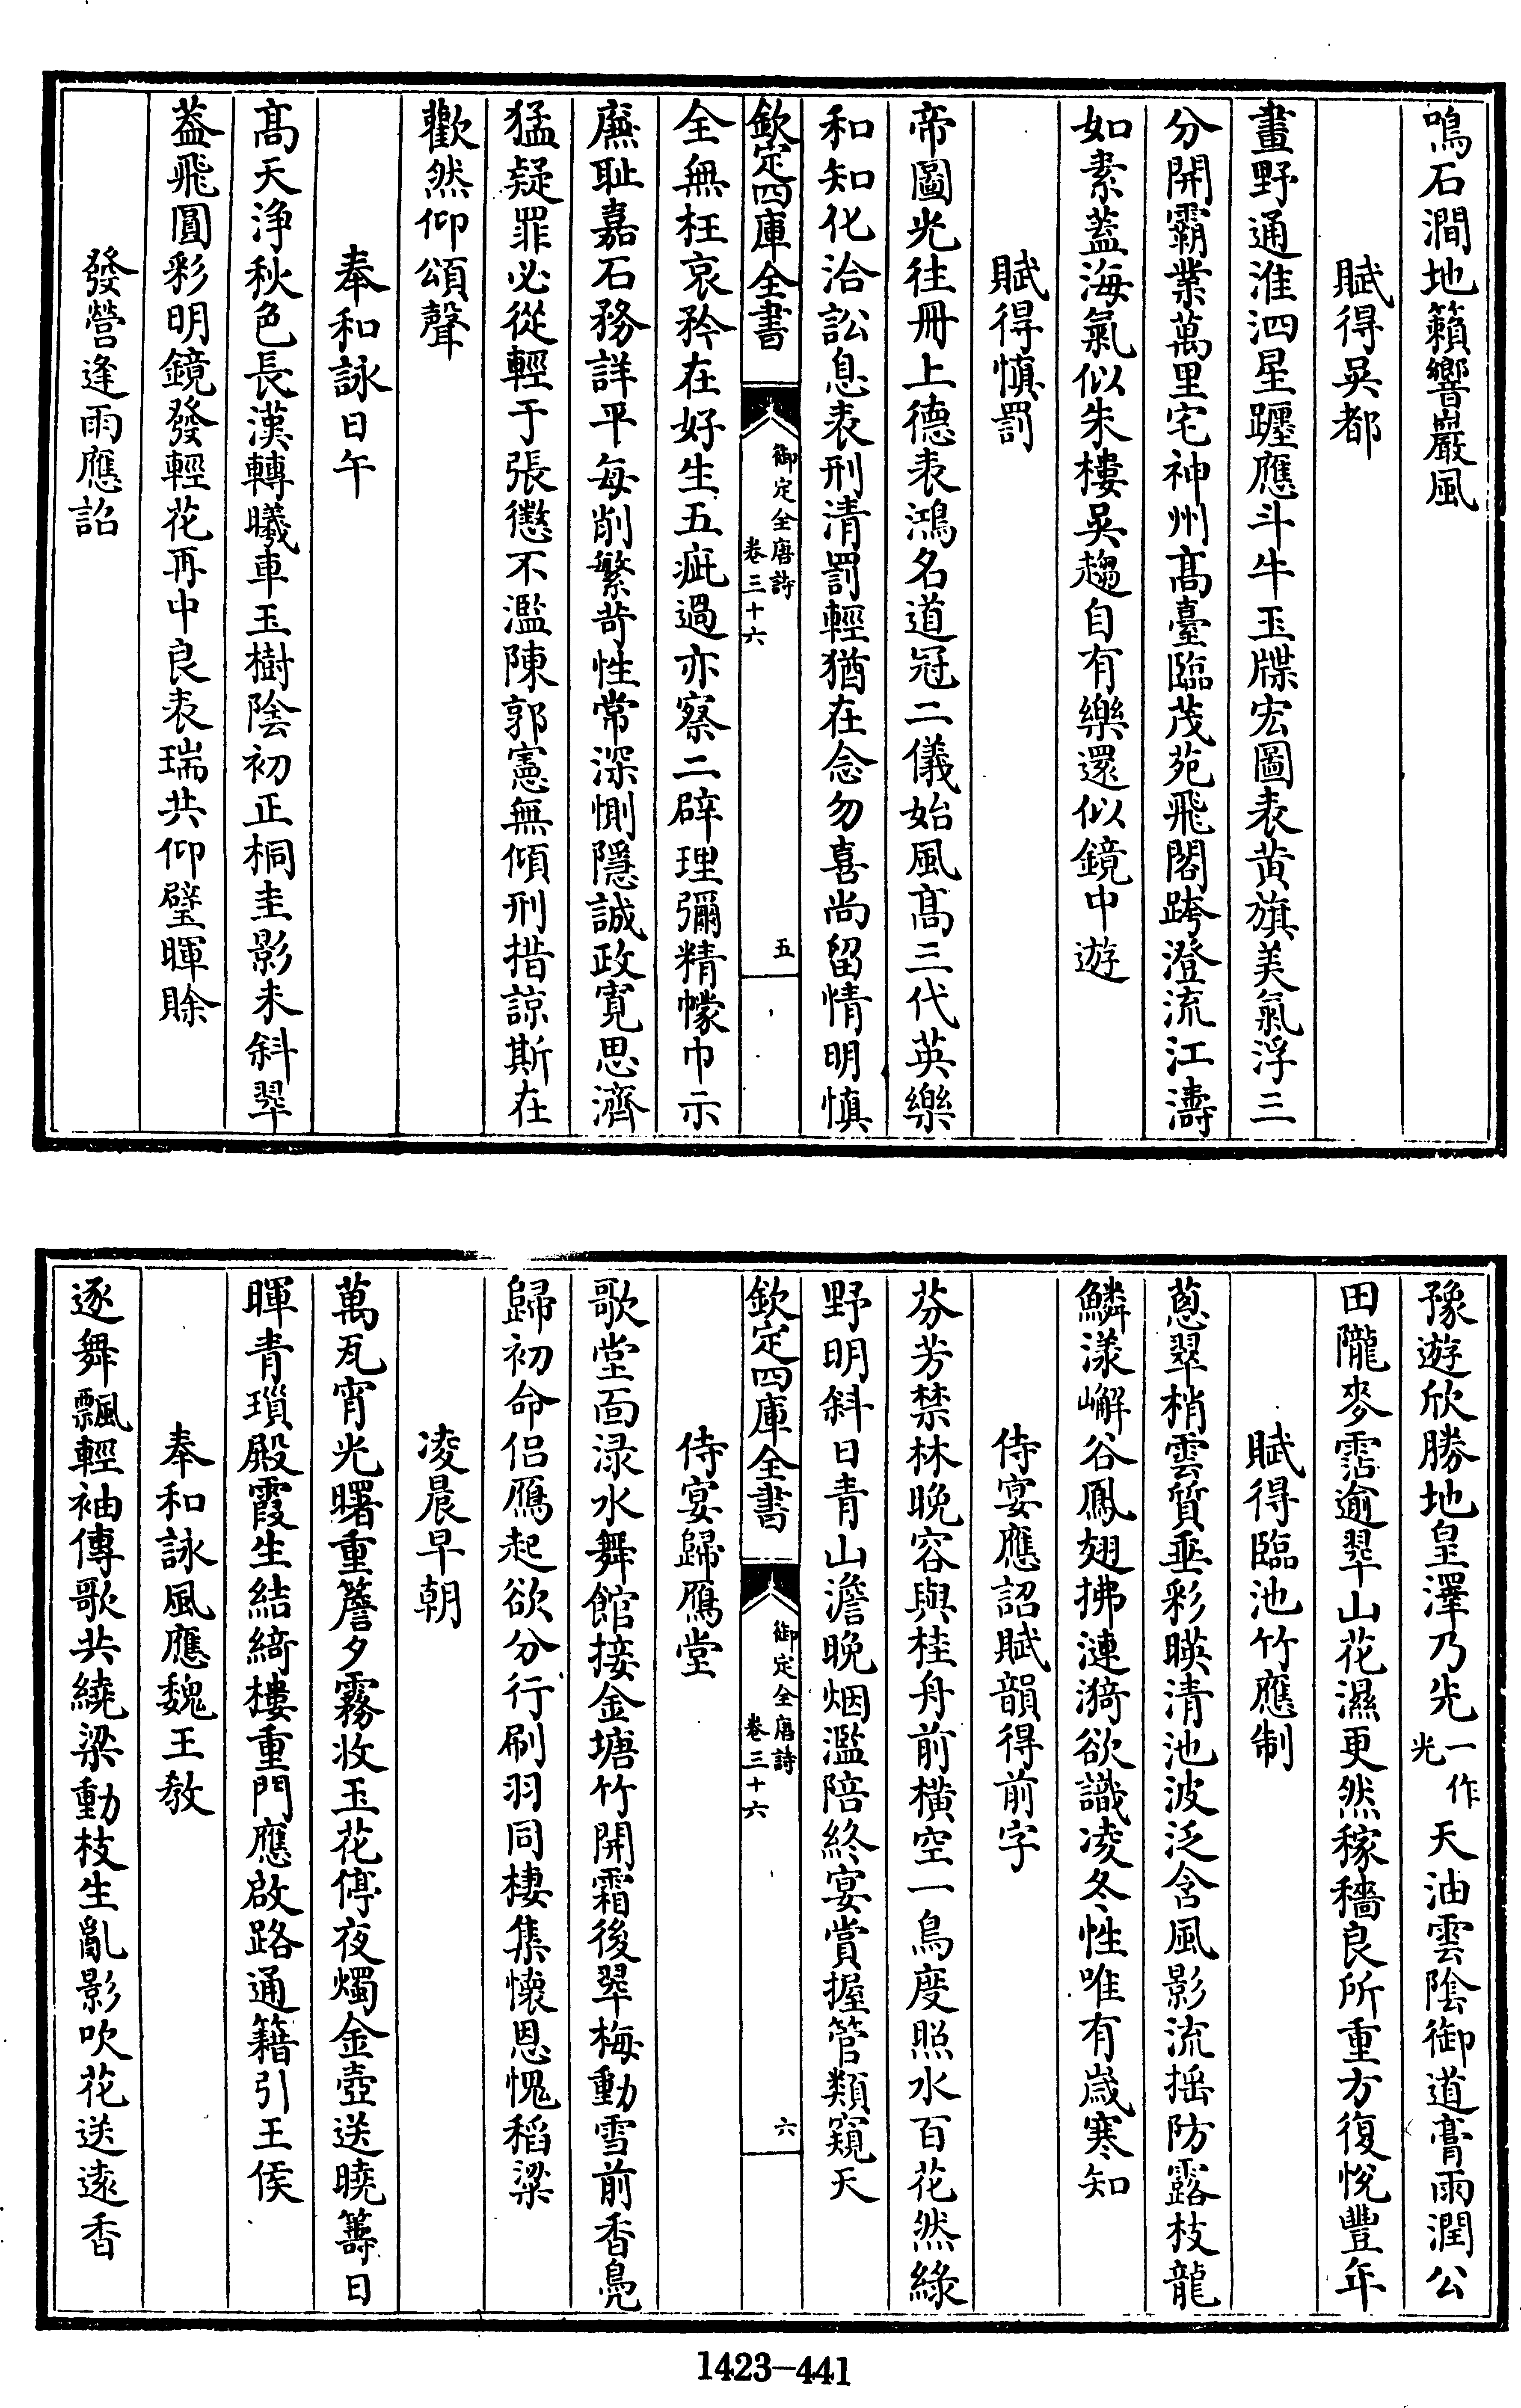 鳴石澗地籟響巖風
賦得吳都
畫野通淮泗星躔應斗牛玉牒宏圖表黃旗美氣浮三
分開霸業萬里宅神州髙臺臨茂苑飛閣跨澄流江濤
如素蓋海氣似朱樓吳趨自有樂還似鏡中遊
賦得慎罰
帝圖光往冊上德表鴻名道冠二儀始風髙三代英樂
和知化洽訟息表刑清罰輕猶在念勿喜尚留情明慎
欽定四庫全書
御定全唐詩
卷三十六
五
全無枉哀矜在好生五疵過亦察二辟理彌精幪巾示
廉恥嘉石務詳平每削繁苛性常深惻隱誠政寛思濟
猛疑罪必從輕于張懲不濫陳郭憲無傾刑措諒斯在
歡然仰頌聲
奉和詠日午
髙天浄秋色長漢轉曦車玉樹陰初正桐圭影未斜翠
葢飛圓彩明鏡發輕花再中良表瑞共仰璧暉賖
發營逢雨應詔
豫遊欣勝地皇澤乃先一作光天油雲陰御道膏雨潤公
田隴麥霑逾翠山花濕更然稼穡良所重方復悅豐年
賦得臨池竹應制
蔥翠梢雲質垂彩暎清池波泛含風影流揺防露枝龍
鱗漾嶰谷鳳翅拂漣漪欲識凌冬性唯有嵗寒知
侍宴應詔賦韻得前字
芬芳禁林晚容與桂舟前横空一鳥度照水百花然緑
野明斜日青山澹晚烟濫陪終宴賞握管類窺天
欽定四庫全書
御定全唐詩
卷三十六
六
侍宴歸鴈堂
歌堂面渌水舞館接金塘竹開霜後翠梅動雪前香鳬
歸初命侶鴈起欲分行刷羽同棲集懷恩愧稻粱
凌晨早朝
萬瓦宵光曙重簷夕霧收玉花停夜燭金壺送曉籌日
暉青瑣殿霞生結綺樓重門應啟路通籍引王侯
奉和詠風應魏王教
逐舞飄輕袖傳歌共繞梁動枝生亂影吹花送逺香
1423-441